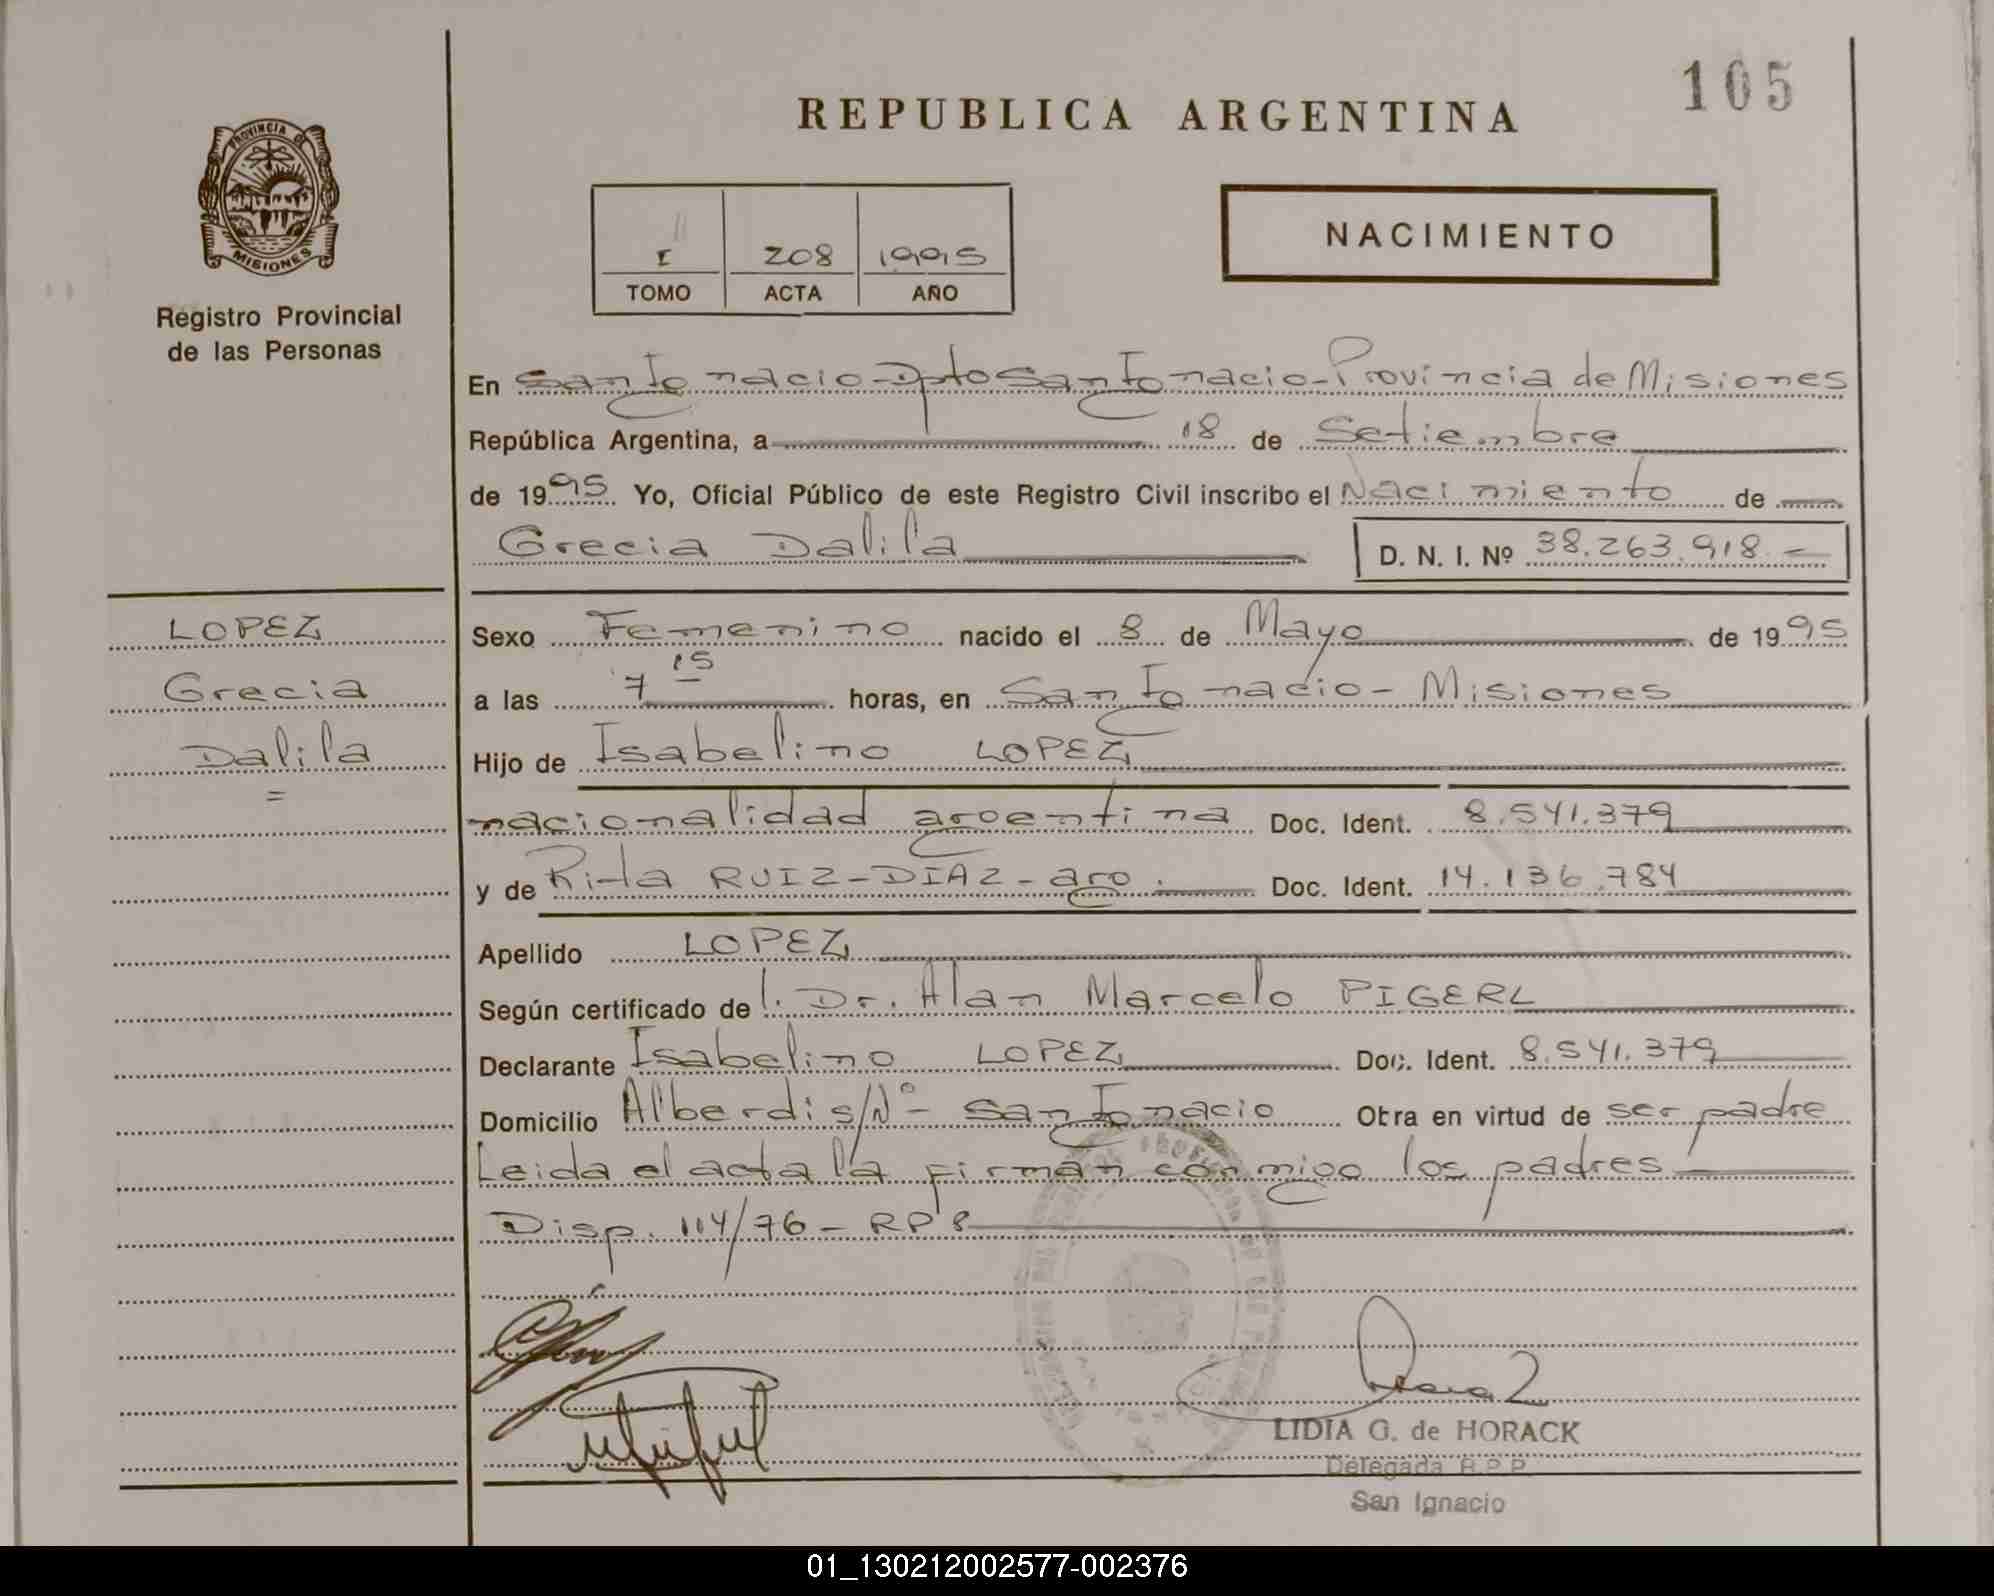 105
REPUBLICA ARGENTINA
PROVINCIA DE
MISIONES
Registro Provincial
de las Personas
I 208 1995
TOMO ACTA AÑO
NACIMIENTO
En San Ignacio-Dpto San Ignacio-Provincia de Misiones
República Argentina, a 18 de Setiembre
de 1995 Yo, Oficial Público de este Registro Civil inscribo el Nacimiento de
Grecia Dalila D. N. I. Nº 38.263.918.-
LOPEZ
Grecia
Dalila
=
Sexo Femenino nacido el 8 de Mayo de 1995
a las 7 15 horas, en San Ignacio- Misiones
Hijo de Isabelino LOPEZ
nacionalidad argentina Doc. Ident. 8.541.379
y de Rita RUIZ-DIAZ-arg. Doc. Ident. 14.136.784
Apellido LOPEZ
Según certificado de l. Dr. Alan Marcelo PIGERL
Declarante Isabelino LOPEZ Doc. Ident. 8.541.379
Domicilio Alberdi s/Nº- San Ignacio Obra en virtud de ser padre
Leida el acta la firman conmigo los padres
Disp. 114/76- RP
LIDIA G. de HORACK
Delegada R.P.P.
San Ignacio
01_130212002577-002376